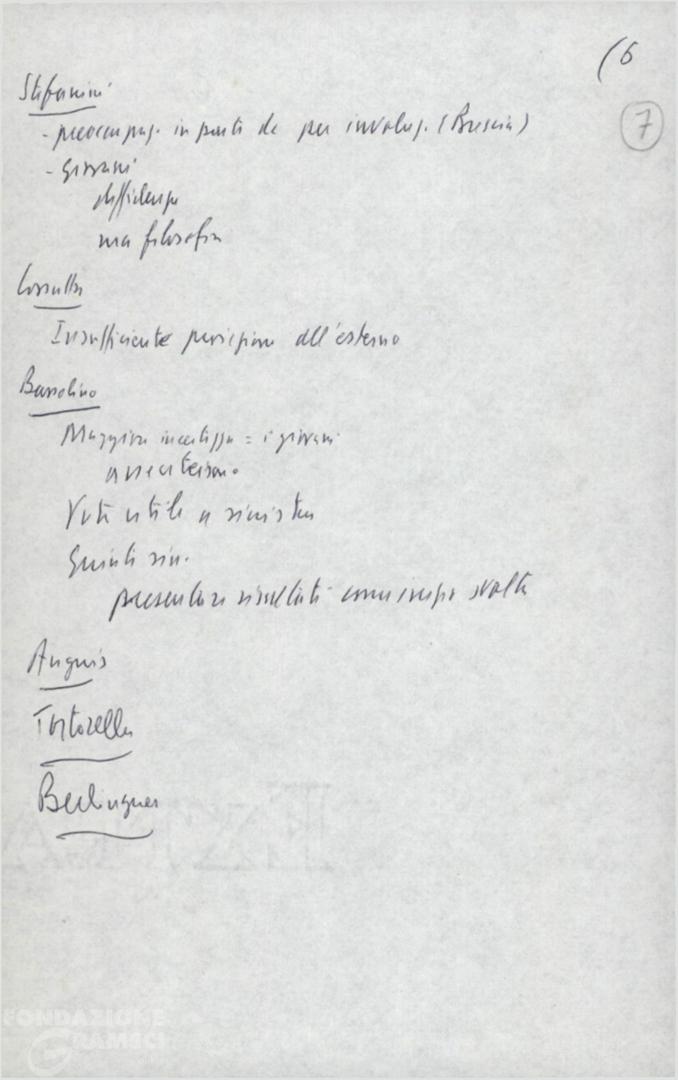 (6
7
Stefanini
- preoccupaz. in parti dc per involuz. (Brescia)
- giovani
diffidenza
ma filosofia
Cossutta
Insufficiente proiezione all'esterno
Bassolino
Maggiore incertezza = i giovani
assenteismo
Voto utile a sinistra
Quindi sin.
presentare risultati come svolta
Angius
Tortorella
Berlinguer
FONDAZIONE
GRAMSCI